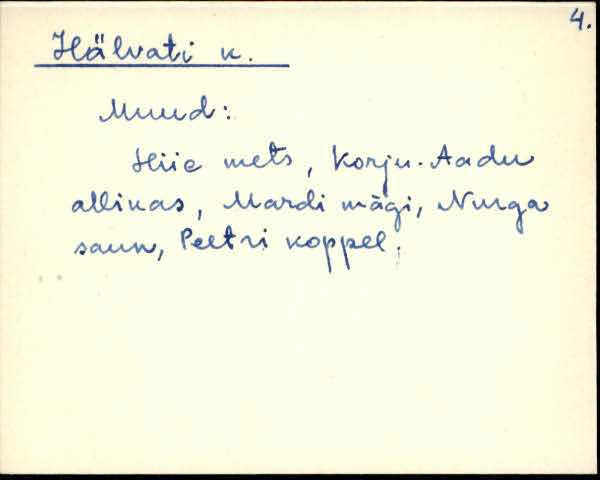 4.
Hälvati k.
Muud:
Hiie mets, Korju-Aadu
allikas, Mardi mägi, Nurga
saun, Peetri koppel.